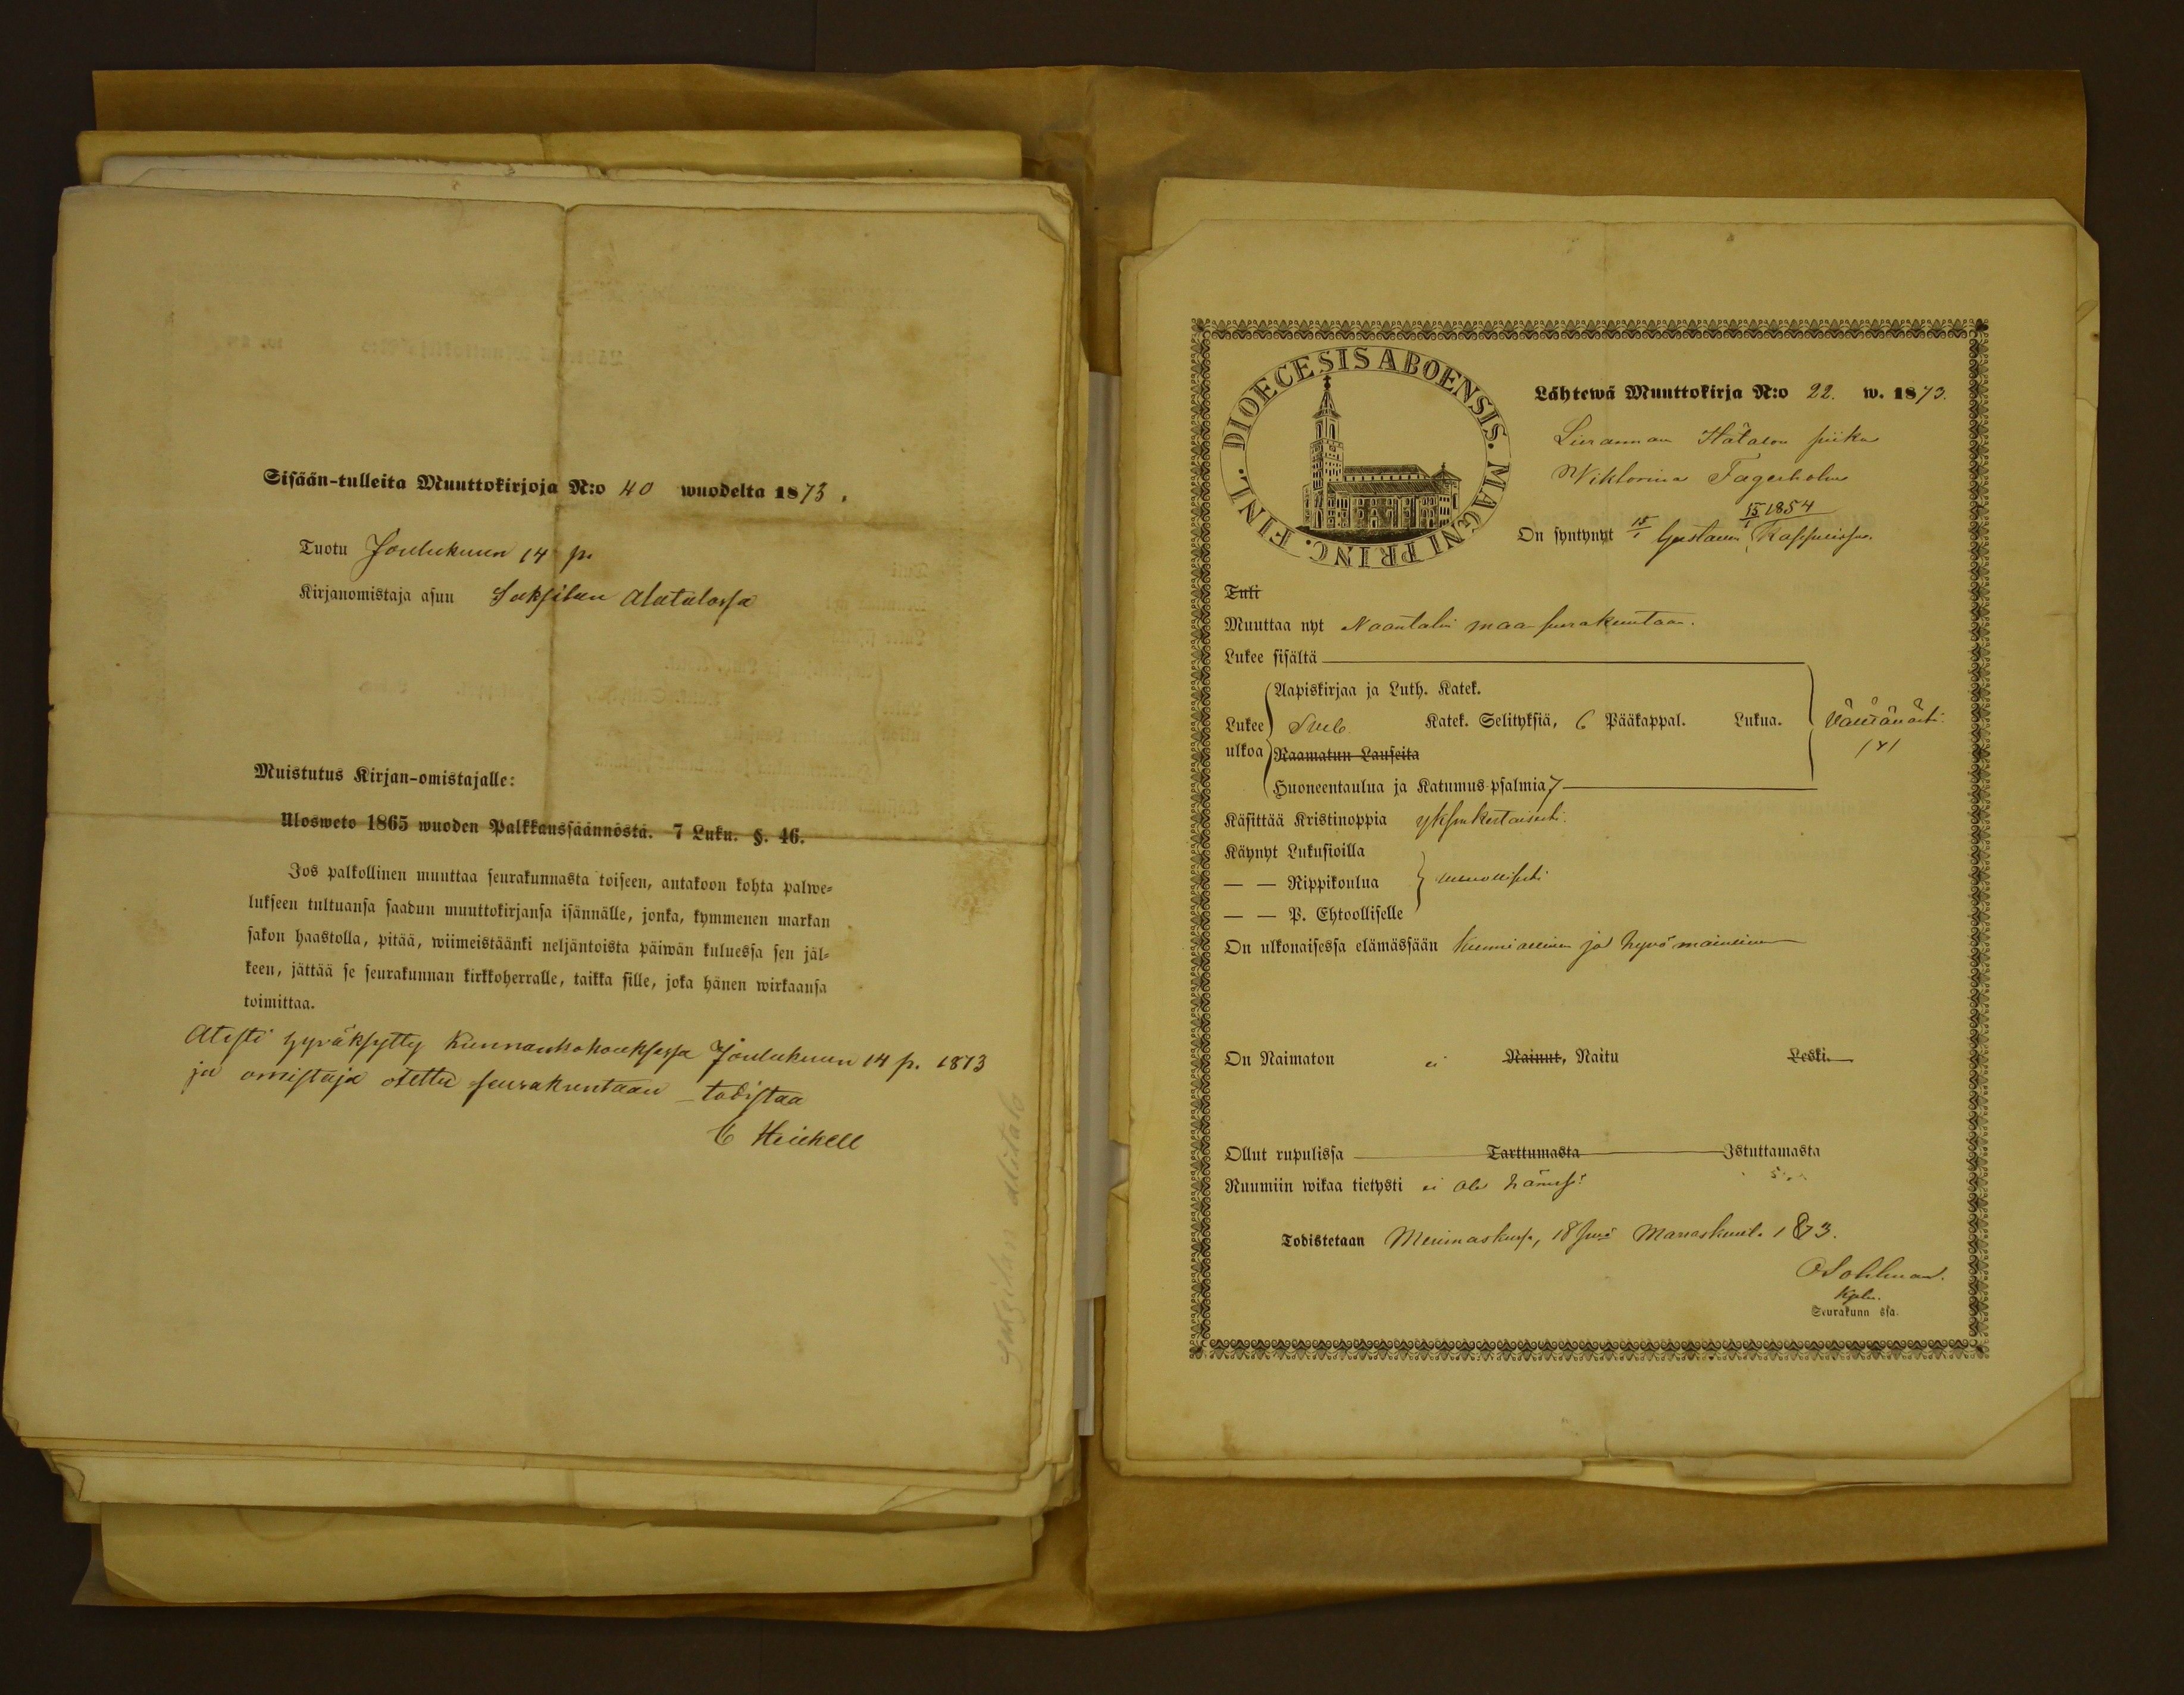 Sisään-tulleita Muuttokirjoja N:o 40 wuodelta 1873.
Tuotu Joulukuun 14 p.
Kirjanomistaja asuu Saksilan Alatalossa
Muistutus Kirjan-omistajalle:
Ulosweto 1865 wuoden Palkkaussäännöstä. 7 Luku. §. 46.
Jos palkollinen muuttaa seurakunnasta toiseen, antakoon kohta palwe-
lukseen tultuansa saadun muuttokirjansa isännälle, jonka, kymmenen markan
sakon haastolla, pitää, wiimeistäänki neljäntoista päiwän kuluessa sen jäl-
keen, jättää se seurakunnan kirkkoherralle, taikka sille, joka hänen wirkaansa
toimittaa.
Atesti hyväksytty Kunnankokouksessa Joulukuun 14 p. 1873
ja omistaja otettu seurakuntaan todistaa
C Heickell
Saksilan alitalo
DIOECESIS ABOENSIS. MAGNI PRINC. FINL.
Lähtewä Muuttokirja N:o 22. w. 1873.
piika
Wiktorina Fagerholm
15/1 1854
On syntynyt 15/1 Kustavin
Tuli
Muuttaa nyt Naantalin maa seurakuntaan.
Lukee sisältä
Aapiskirjaa ja Luth. Katek.
Lukee Katek. Selityksiä, 6 Pääkappal. Lukua.
ulkoa Raamatun Lauseita
Huoneentaulua ja Katumus-psalmia 7
Käsittää Kristinoppia yksinkertaisesti.
Käynyt Lukusioilla
— — Rippikoulua
— — P. Ehtoolliselle
On ulkonaisessa elämässään kunniallinen ja hyvämaineinen
On Naimaton ei Nainut, Naitu Leski.
Ollut rupulissa Tarttumasta Istuttamasta
Ruumiin wikaa tietysti ei ole hänessä
Todistetaan Merimaskussa, 18 Marraskuuta 1873.
O Sohlman.
Kpln.
Seurakunn ssa.